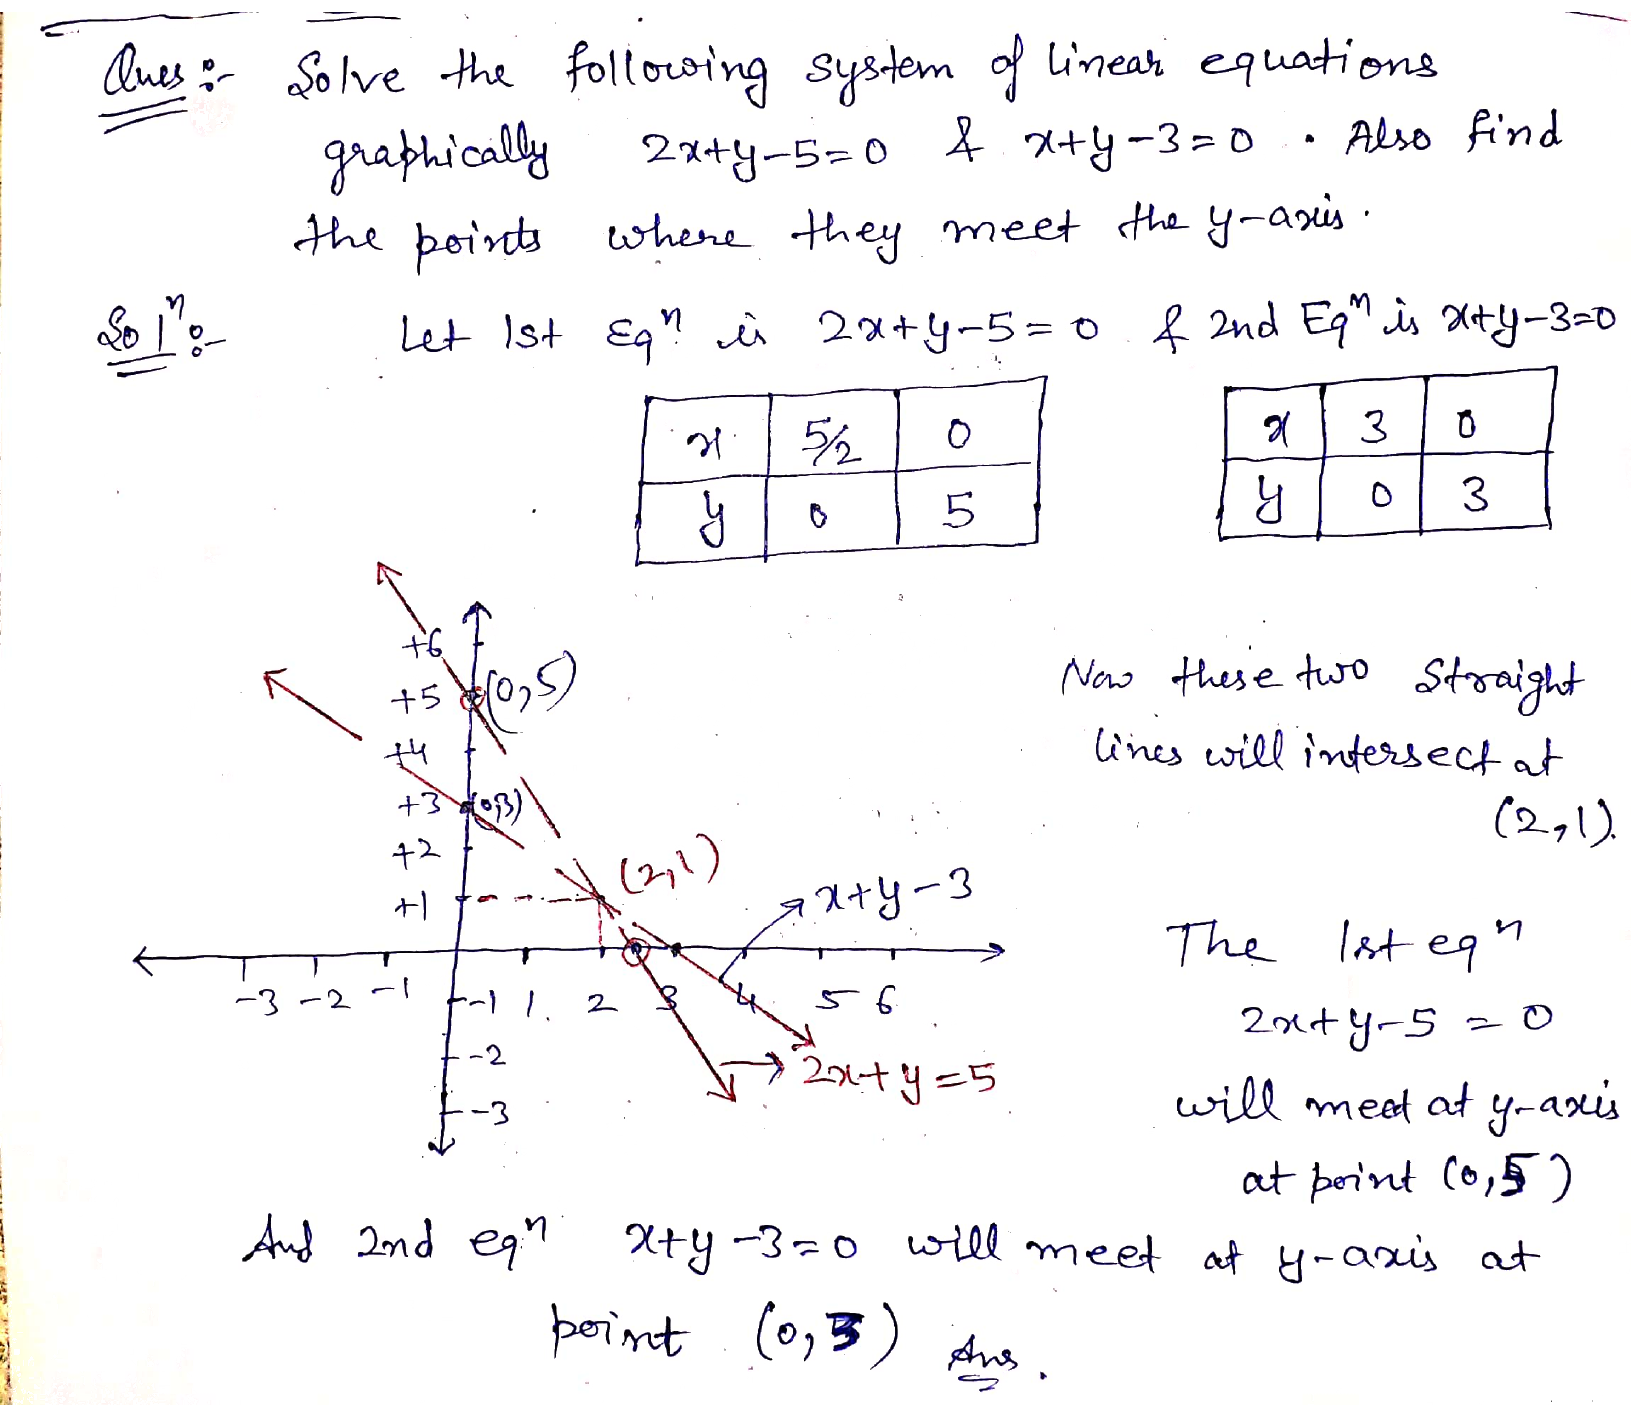 Ques:- Solve the following system of linear equations
graphically 2x+y-5=0 & x+y-3=0. Also find
the points where they meet the y-axis.
Solⁿ:- Let 1st Eqⁿ is 2x+y-5=0 & 2nd Eqⁿ is x+y-3=0
x 5/2 0
y 0 5
x 3 0
y 0 3
+6
+5 (0,5)
+4
+3 (0,3)
+2
+1 (2,1)
x+y-3
-3 -2 -1 1 2 3 4 5 6
-1
-2
-3
2x+y=5
Now these two Straight
lines will intersect at
(2,1).
The 1st eqⁿ
2x+y-5=0
will meet at y-axis
at point (0,5)
And 2nd eqⁿ x+y-3=0 will meet at y-axis at
point (0,3) Ans.